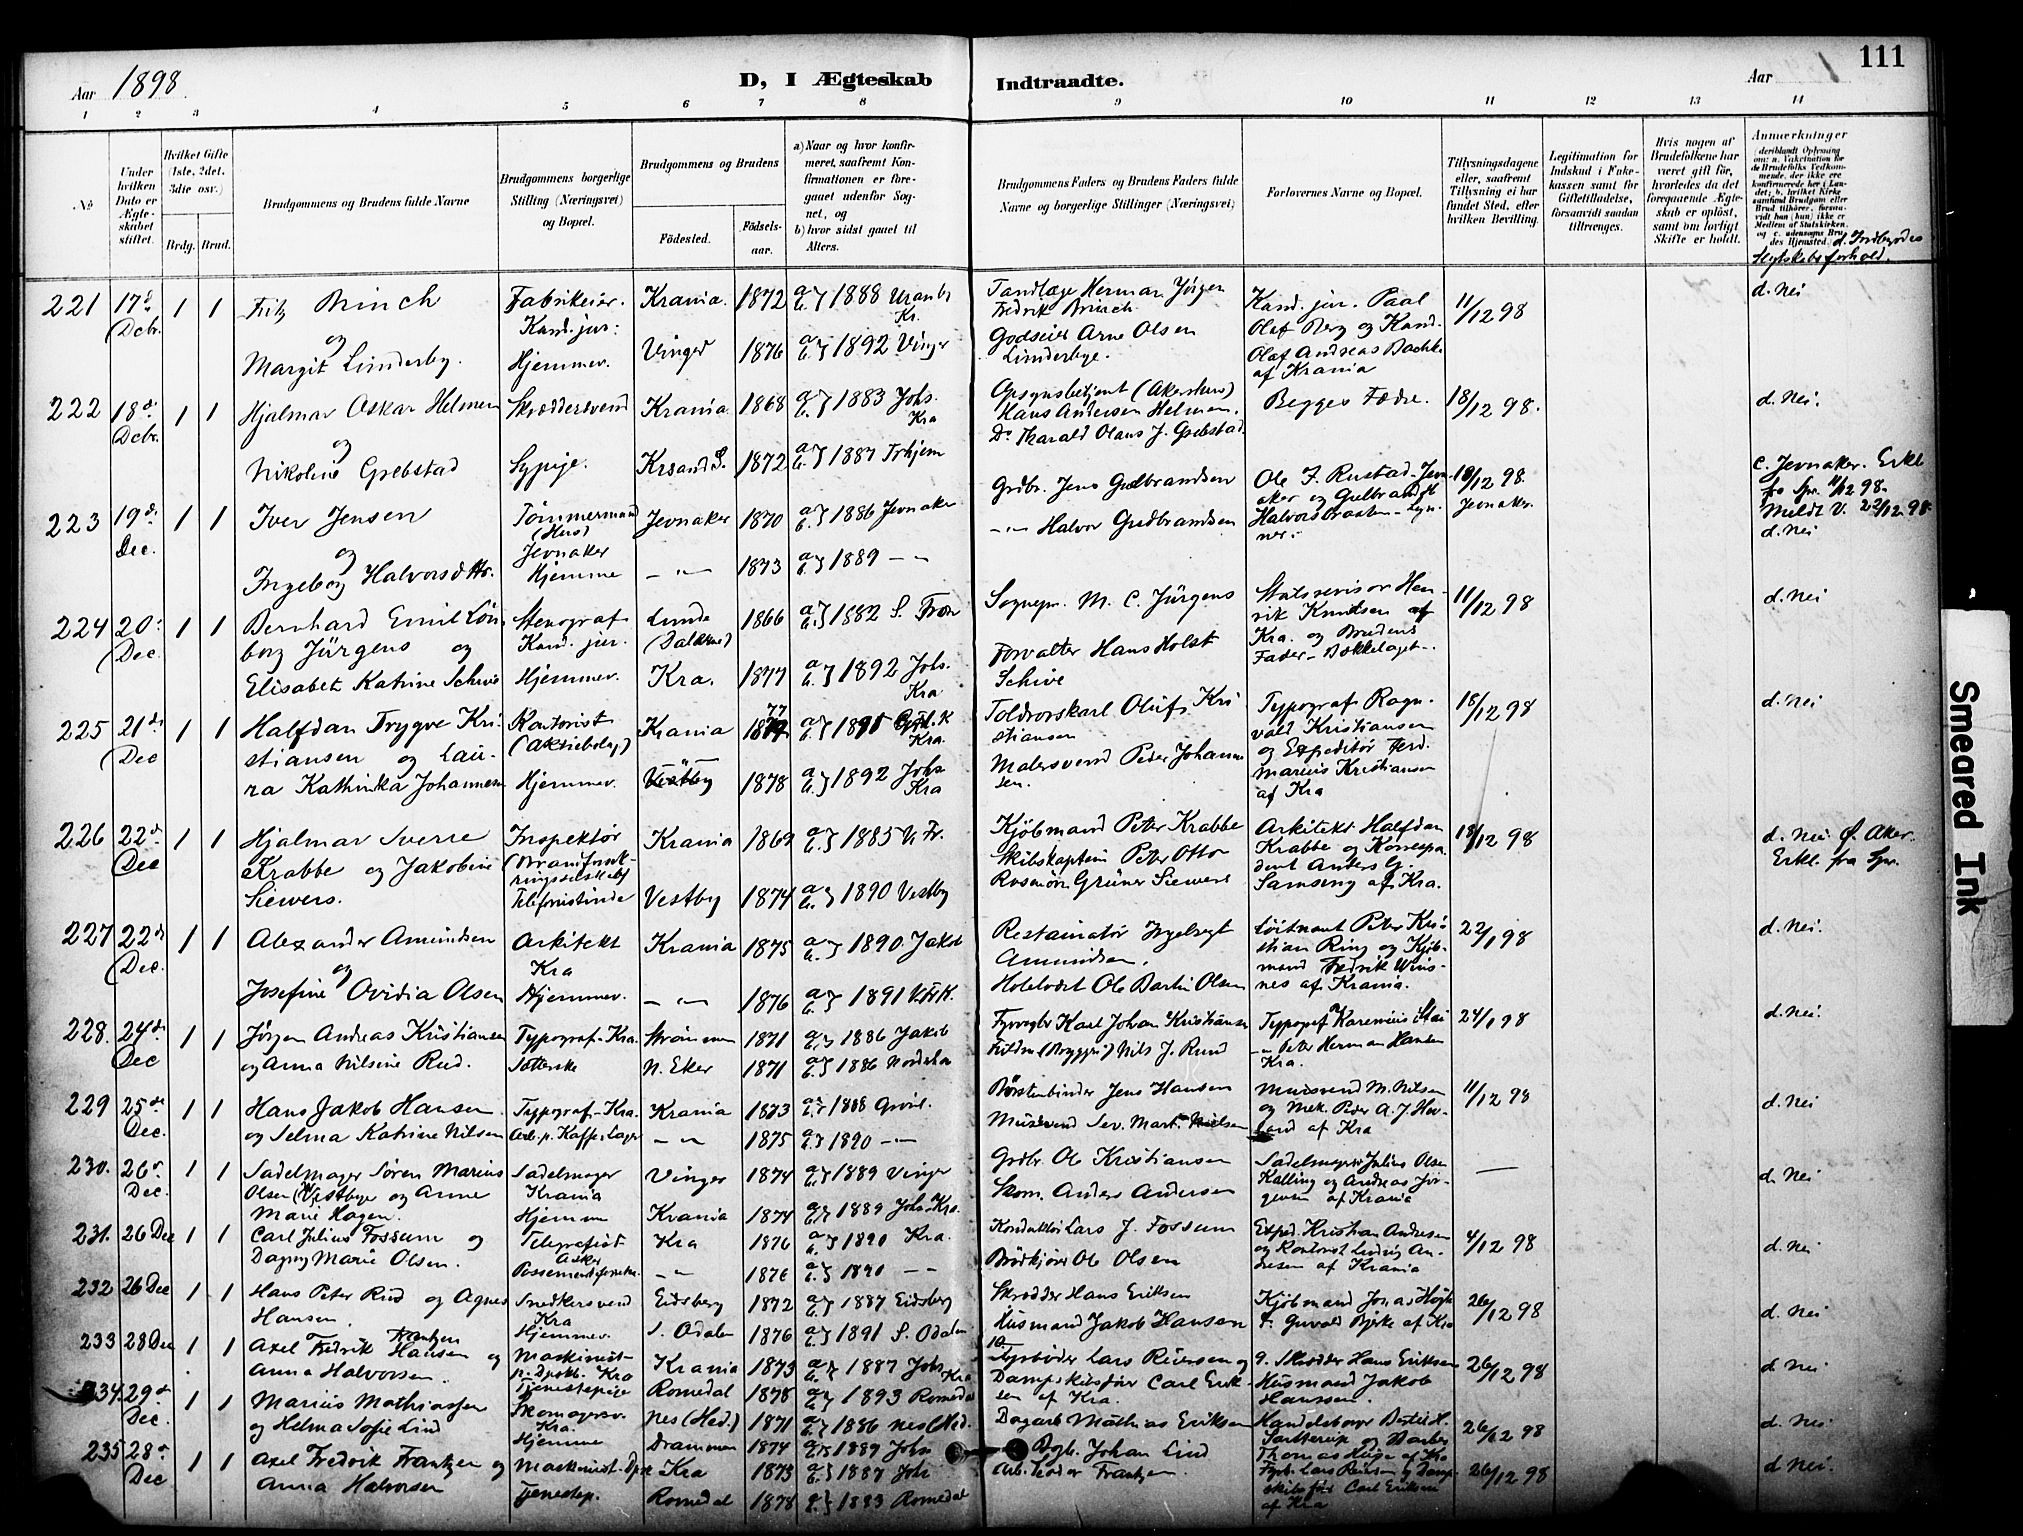 Aar 1898
D, I Ægteskab Indtraadte.
Aar
111
1 2 3 4 5 6 7 8 9 10 11 12 13 14
No
Under hvilken Dato er Ægteskabet stiftet.
Hvilket Gifte (1ste, 2det, 3die osv.)
Brdg. Brud.
Brudgommens og Brudens fulde Navne
Brudgommens borgerlige Stilling (Næringsvei) og Bopæl.
Brudgommens og Brudens
Fødested. Fødselsaar.
a) Naar og hvor konfirmeret, saafremt Konfirmationen er foregaaet udenfor Sognet, og
b) hvor sidst gaaet til Alters.
Brudgommens Faders og Brudens Faders fulde Navne og borgerlige Stillinger (Næringsvei)
Forlovernes Navne og Bopæl.
Tillysningsdagene eller, saafremt Tillysning ei har fundet Sted, efter hvilken Bevilling.
Legitimation for Indskud i Enkekassen samt for Giftetilladelse, forsaavidt saadan tiltrænges.
Hvis nogen af Brudefolkene har været gift før, hvorledes da det foregaaende Ægteskab er opløst, samt om lovligt Skifte er holdt.
Anmerkninger
d. Indbyrdes Slegtskabsforhold.
221 17d Dcbr. 1 1 Fritz Brinch og Margit Linderby. Fabrikeier. Kand. jur: Hjemmev. Krania. 1872 1888 Kr. Vinger 1876 1892 Vinger
Tandlæge Herman Jörgen Fredrik Brinch. Godseier Arne Olsen Linderbye. Kand. jur. Paal Olaf Berg og Kand. Olaf Andreas Bachke af Krania 11/12 98 d. Nei
222 18d Dcbr. 1 1 Hjalmar Oskar Helmen og Nikoline Grebstad Skræddersvend Sypige. Krania 1868 1883 Johs. Kra Krsand S. 1872 1887 Trhjem
Opsynsbetjent (Akershus) Hans Andersen Helmen. Do Tharald Olaus J. Grebstad. Begges Fædre. 18/12 98. d. Nei.
223 19d Dec. 1 1 Iver Jensen og Ingeborg Halvorsdttr. Tömmermand Jevnaker Hjemme Jevnaker 1870 1886 Jevnaker — " — 1873 1889 — " —
Grdbr. Jens Gulbrandsen — " — Halvor Gudbrandsen Ole F. Rustad - Jevnaker og Gulbrand 18/12 98. Jevnaker. C. Jevnaker. Erkl fra Spr. 11/12 98. Meldt V. 22/12 98. d. Nei
224 20d Dec. 1 1 Bernhard Emil Lönborg Jürgens og Elisabet Katrine Schive Stenograf Kand. jur. Hjemmev. Lunde 1866 1882 S. Fron Kra. 1877 1892 Johs. Kra
Sognepr. M. C. Jürgens Forvalter Hans Holst Schive Statsrevisor Henrik Knudsen af Kra. og Brudens Fader - Bækkelaget. 11/12 98 d. Nei
225 21d Dec 1 1 Halfdan Trygve Kristiansen og Laura Kathinka Johannesen Kontorist (Aktiebolag) Hjemmev. Krania 77 Kra. Vestby 1878 1892 Johs Kra
Toldvorskarl Oluf Kristiansen Malersvend Peder Johannesen. Typograf Ragnvald Kristiansen og Expeditör Ferd. Marius Kristiansen af Kra 18/12 98 d. Nei
226 22d Dec 1 1 Hjalmar Sverre Krabbe og Jakobine Siewers. Inspektör Telefonistinde Krania 1869 1885 V. Fr. Vestby 1874 1890 Vestby
Kjöbmand Peter Krabbe Skibskaptein Peter Otto Rosenörn Grüner Siewers Arkitekt Halfdan Krabbe og Korrespondent Anders G. Samseng af Kra. 18/12 98 d. Nei Ø. Aker. Erkl. fra Spr.
227 22d Dec. 1 1 Alexander Amundsen og Josefine Ovidia Olsen Arkitekt Kra Hjemmev. Krania 1875 1890. Jakob — " — 1876 1891 V. Fr. K.
Restauratör Ingebregt Amundsen. Hotelvært Ole Martin Olsen Löitnant Peter Kristian Ring og Kjöbmand Fredrik Winsnes af Krania. 22/1 98 d. Nei.
228. 24d Dec 1 1 Jörgen Andreas Kristiansen og Anna Nilsine Rud. Typograf - Kra. Strömmen 1871 1886 Jakob N. Eker 1871 1886
Karl Johan Kristiansen Nils J. Ruud Typograf — " — Peter Herman Hansen Kra. 24/1 98 d. Nei.
229 25d Dec. 1 1 Hans Jakob Hansen og Selma Katrine Nilsen Typograf - Kra. Arb. p. Kaffe-Lager Krania 1873 1888 — " — 1875 1890 — " —
Börstenbinder Jens Hansen Mursvend Sev. Mart. Nielsen Mursvend M. Nilsen og Mek. Peder A. J. af Kra 11/12 98 d. Nei
230. 26d Dec. 1 1 Sadelmager Sören Marius Olsen (Vestbye og Anne Marie Hagen. Sadelmager Krania Hjemme Vinger 1874 1889 Vinger Krania 1874 1889 Johs. Kra.
Grdbr. Ole Kristiansen Skom. Anders Andersen Sadelmager Julius Olsen Kalling og Andreas Jörgensen af Krania — d. Nei
231. 26 Dec 1 1 Carl Julius Fossum og Dagny Marie Olsen. Telegrafist Asker Kra 1876 1890 Kra. — " — 1876 1890 — " —
Konduktör Lars J. Fossum Brödkjörer Ole Olsen Exped. Kristian Andresen og Kontorist Ludvig Andresen af Krania 4/12 98 d. Nei
232 26 Dec 1 1 Hans Peter Rud og Agnes Hansen. Snedkersvend Kra Hjemmev. Eidsberg 1872 1887 Eidsberg S. Odalen 1876 1891 S. Odalen
Skrædder Hans Eriksen Husmand Jakob Hansen Kjöbmand Jonas F. Guvald Bjerke af Kra 26/12 98 d. Nei
233 28 Dec 1 1 Axel Fredrik Frantzen Hansen og Anna Halvorsen. Maskinist - Kra Tjenestepige Krania 1873 1887 Johs Kra Romedal 1878 1893 Romedal
Fyrböder Lars Reiersen og Dampskibsförer Carl Eriksen af Kra. 9. Skrædder Hans Eriksen Husmand Jakob Hanssen. 26/12 98 d. Nei
234. 29d Dec. 1 1 Marius Mathiassen og Helma Sofie Lind Skomagersv. Kra. Hjemme Nes (Hed.) 1871 1886 Nes (Hed. Drammen 1874 1889 Johs
Dagarb. Mathias Eriksen Dagb. Johan Lind Handelsborger og af Kra 26/12 98 d. Nei
235 28d Dec 1 1 Axel Fredrik Frantzen og Anna Halvorsen Maskinist Tjenestep. Kra 1873 1887 Johs Romedal 1878 1893 Romedal
Frantzen. Fyrb. Lars Reiersen og Dampskibsförer Carl Eriksen af Kra 26/12 98 d. Nei.
Smeared Ink